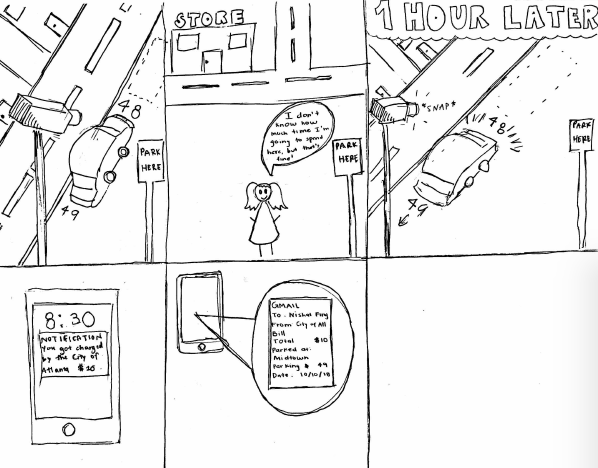 48
PARK
HERE
49
STORE
I don't
know how
much time I'm
going to spend
here, but that's
fine!
PARK
HERE
1 HOUR LATER
*SNAP*
48
PARK
HERE
49
8:30
NOTIFICATION
You got charged
by the City of
Atlanta
GMAIL
To:
From City of All
Bill
Total $10
Parked at:
Midtown
Parking # 49
Date: 10/10/18